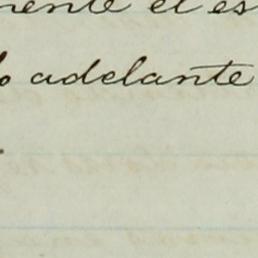 mente el es
o adelante